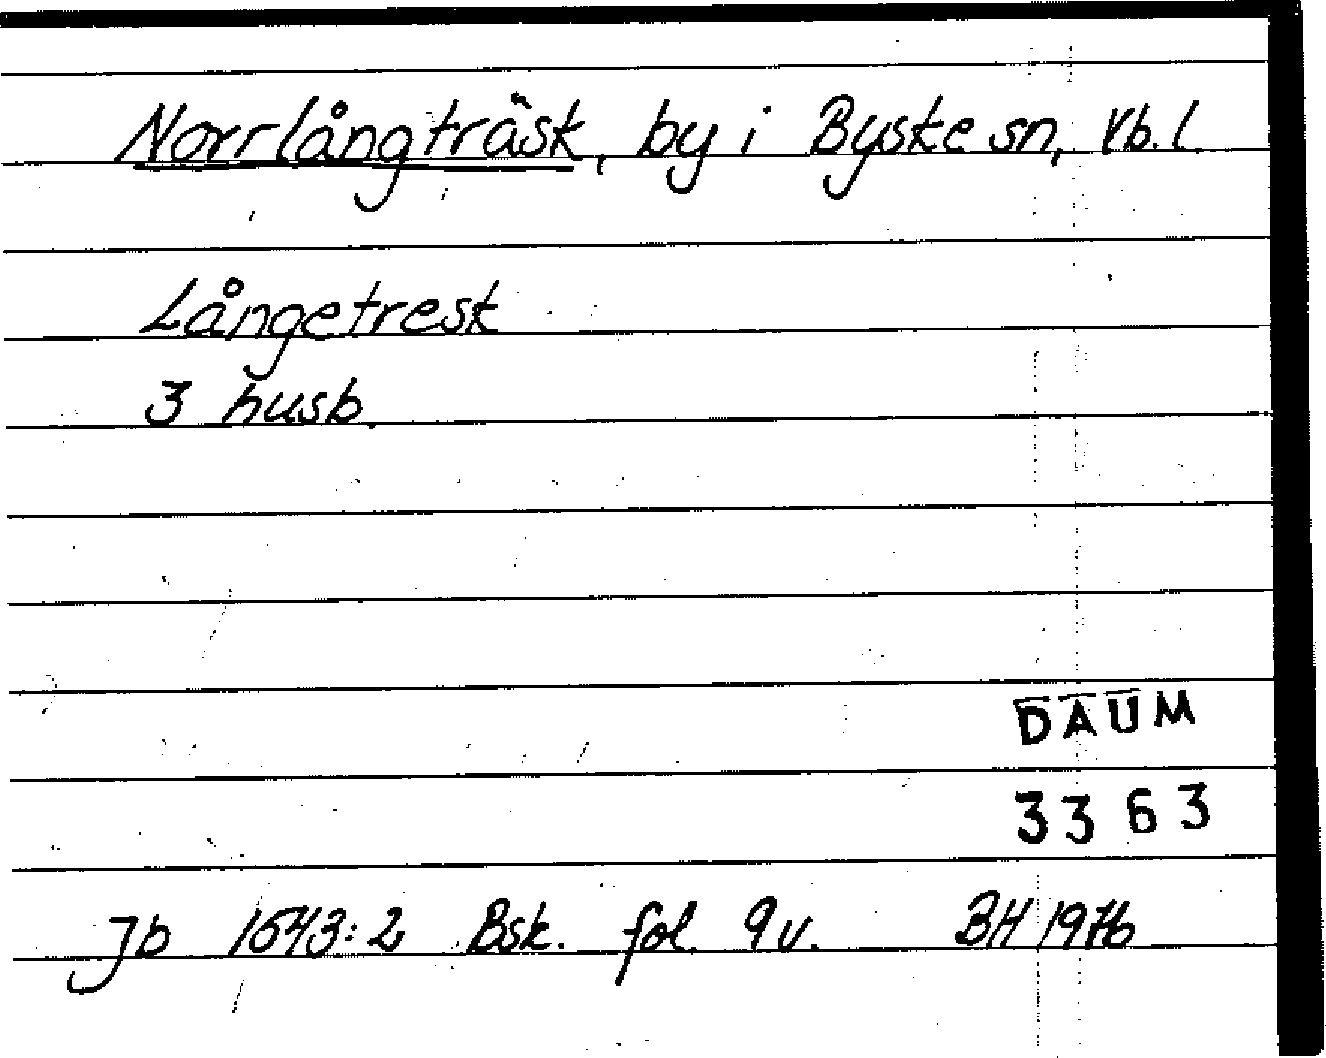 Norrlångträsk, by i Byske sn, Vb. l.
Långetresk
3 husb.
DAUM
3363
Jb 1543:2 Bsk. fol. 9v. BH 1976